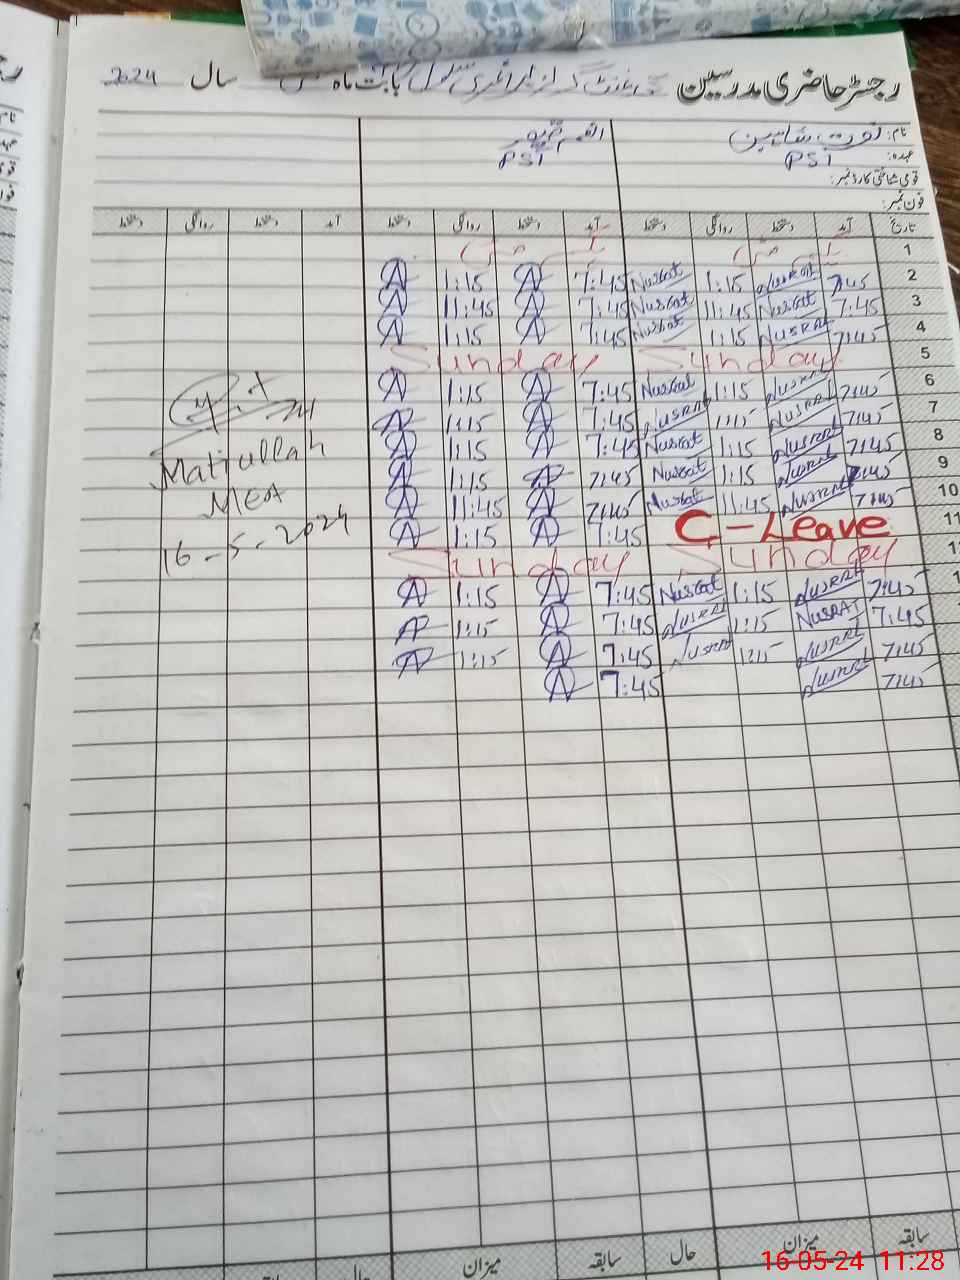 رجسٹر حاضری مدرسین گورنمنٹ گرلز پرائمری سکول بابت ماہ مئی سال 2024
نام: نصرت شاہین
عہدہ: PST PST
قومی شناختی کارڈ نمبر:
فون نمبر:
تاریخ آمد دستخط روانگی دستخط آمد دستخط روانگی دستخط آمد دستخط روانگی دستخط
1 یکم مئی یکم مئی
2 7:45 Nusrat 1:15 Nusrat 7:45 A 1:15 A
3 7:45 Nusrat 11:45 Nusrat 7:45 A 11:45 A
4 7:45 NUSRAT 1:15 Nusrat 7:45 A 1:15 A
5 Sunday Sunday
6 7:45 Nusrat 1:15 Nusrat 7:45 A 1:15 A
7 7:45 Nusrat 1:15 Nusrat 7:45 A 1:15 A
8 7:45 Nusrat 1:15 Nusrat 7:45 A 1:15 A
9 7:45 Nusrat 1:15 Nusrat 7:45 A 1:15 A
10 7:45 Nusrat 11:45 Nusrat 7:45 A 11:45 A
11 C-Leave 7:45 A 1:15 A
Sunday Sunday
7:45 Nusrat 1:15 Nusrat 7:45 A 1:15 A
7:45 NUSRAT 1:15 Nusrat 7:45 A 1:15 A
7:45 Nusrat 1:15 Nusrat 7:45 A 1:15 A
7:45 Nusrat 7:45 A
Matiullah
MEA
16-5-2024
سابقہ میزان حال سابقہ میزان حال
16-05-24 11:28